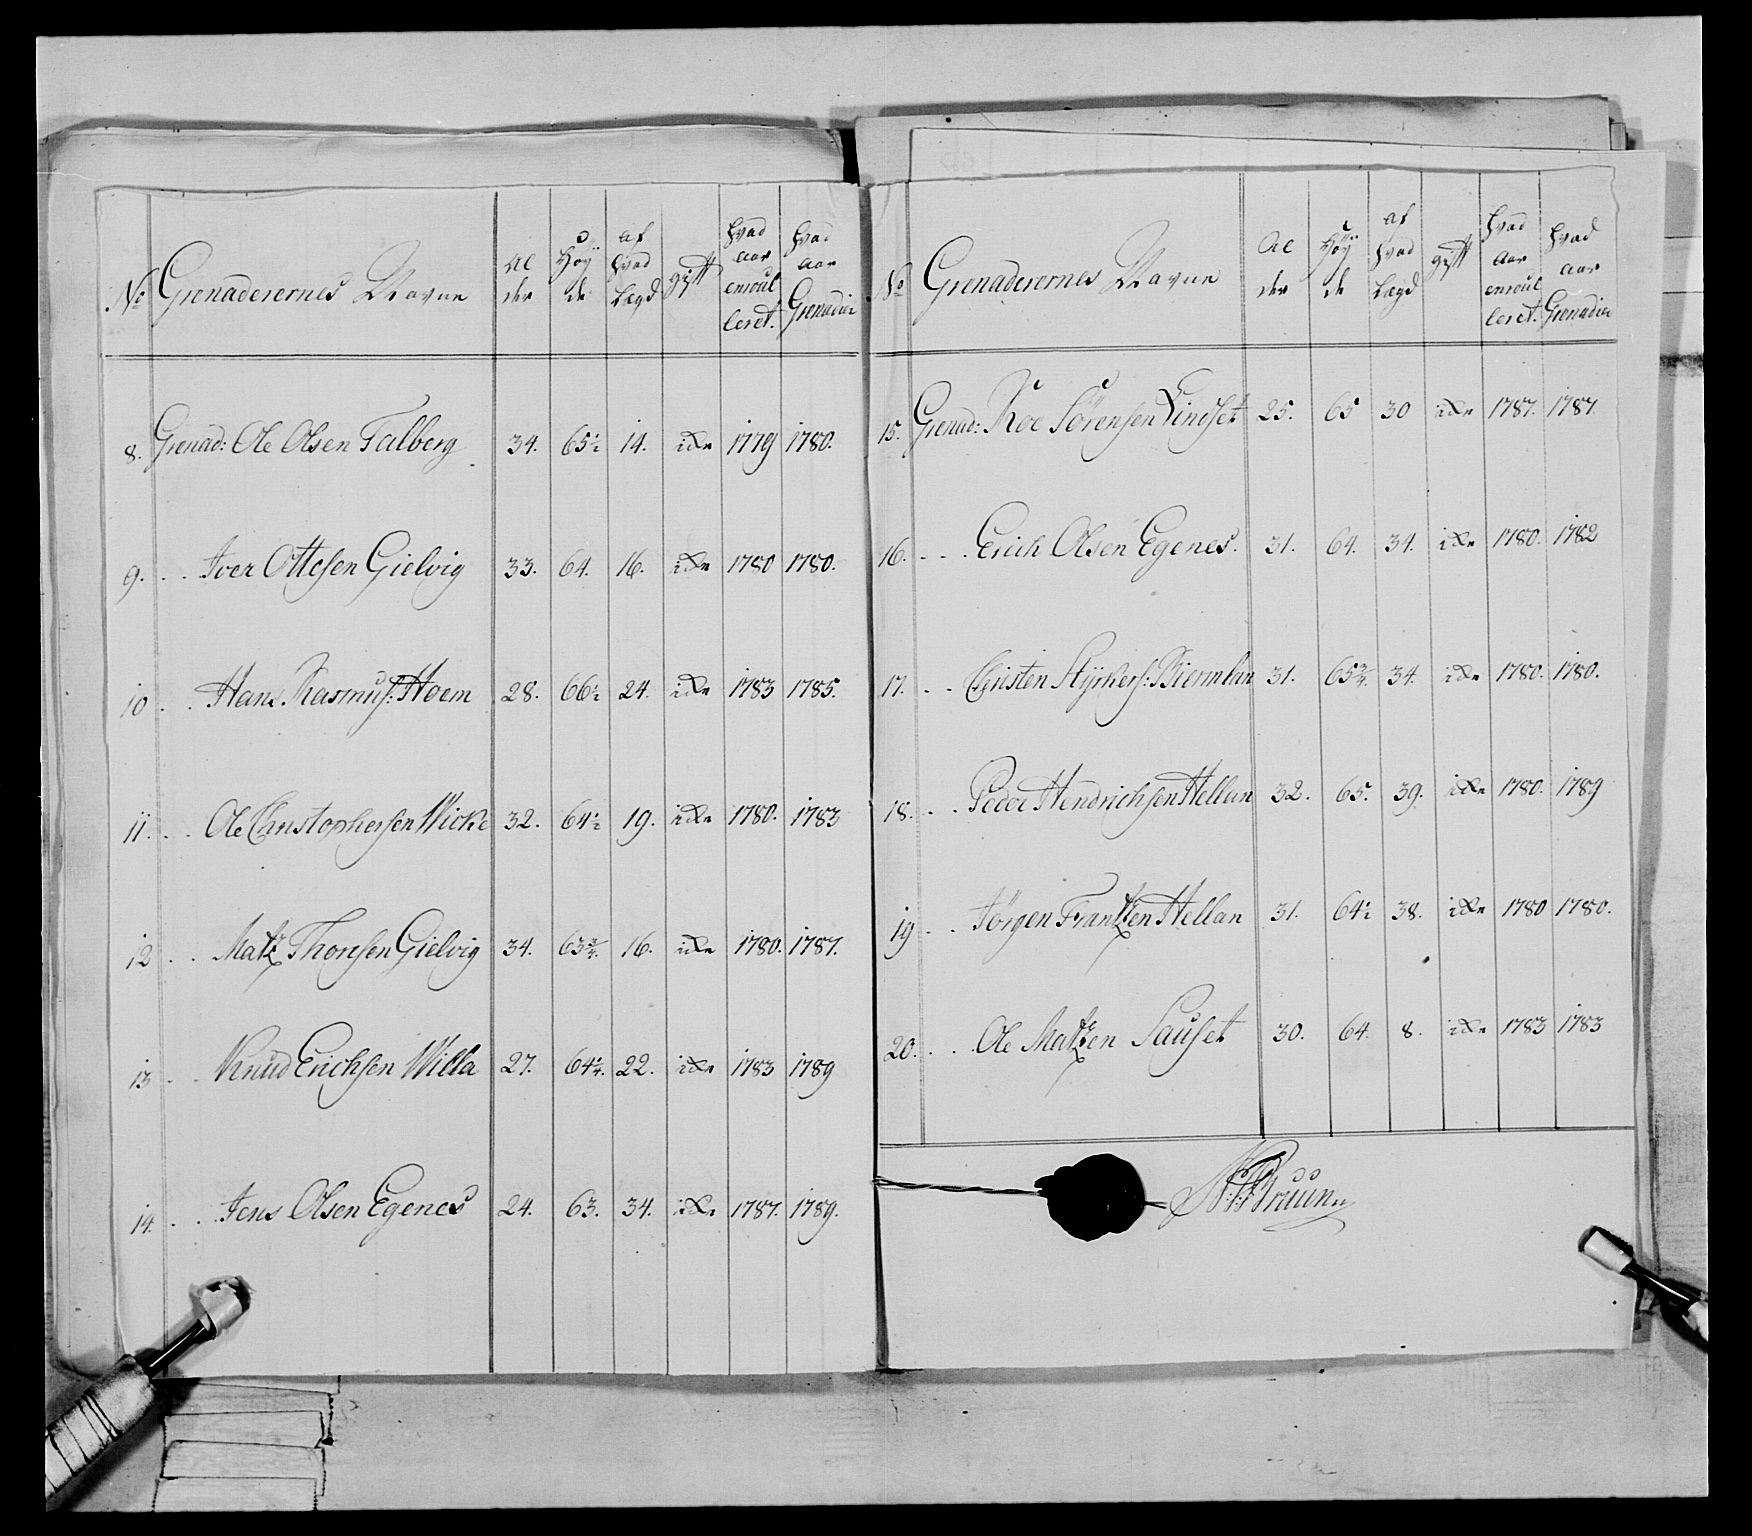 No Grenaderernes Navne Al der Höy de af hvad Lægd gift hvad aar enroul leret. hvad aar Grenadier
8. Grenad: Ole Olsen Talberg 34. 65½ 14. icke 1779 1780.
9. . . Iver Ottesen Gielvig 33. 64. 16. icke 1780 1780.
10 . . Hans Rasmus: Hoem 28. 66½ 24. icke 1783 1785.
11. . . Ole Christophersen Wicke 32. 64½ 19. icke 1780. 1783
12 . . Matz Thorsen Gielvig 34. 63¾. 16. icke 1780. 1787.
13 . . Knud Erichsen Willa 27. 64¼. 22. icke 1783 1789
14. . . Jens Olsen Egenes 24. 63. 34. icke 1787. 1789.
No Grenaderernes Navne Al der Höy de af hvad Lægd gift hvad aar enroul leret. hvad aar Grenadier
15. Grenad: Roe Sörensen Lindset 25. 65 30 icke 1787. 1787.
16. . . Erich Olsen Egenes. 31. 64. 34. icke 1780. 1782
17. . . Christen Styrkers: Biermlan 31. 65¾. 34. icke 1780. 1780.
18. . . Peder Hendrichsen Hellan 32. 65. 39. icke 1780. 1789
19 . . Jörgen Frantzen Hellan 31. 64½ 38. icke 1780 1780.
20. . . Ole Matzen Sauset 30. 64. 8. icke 1783 1783
Bruun